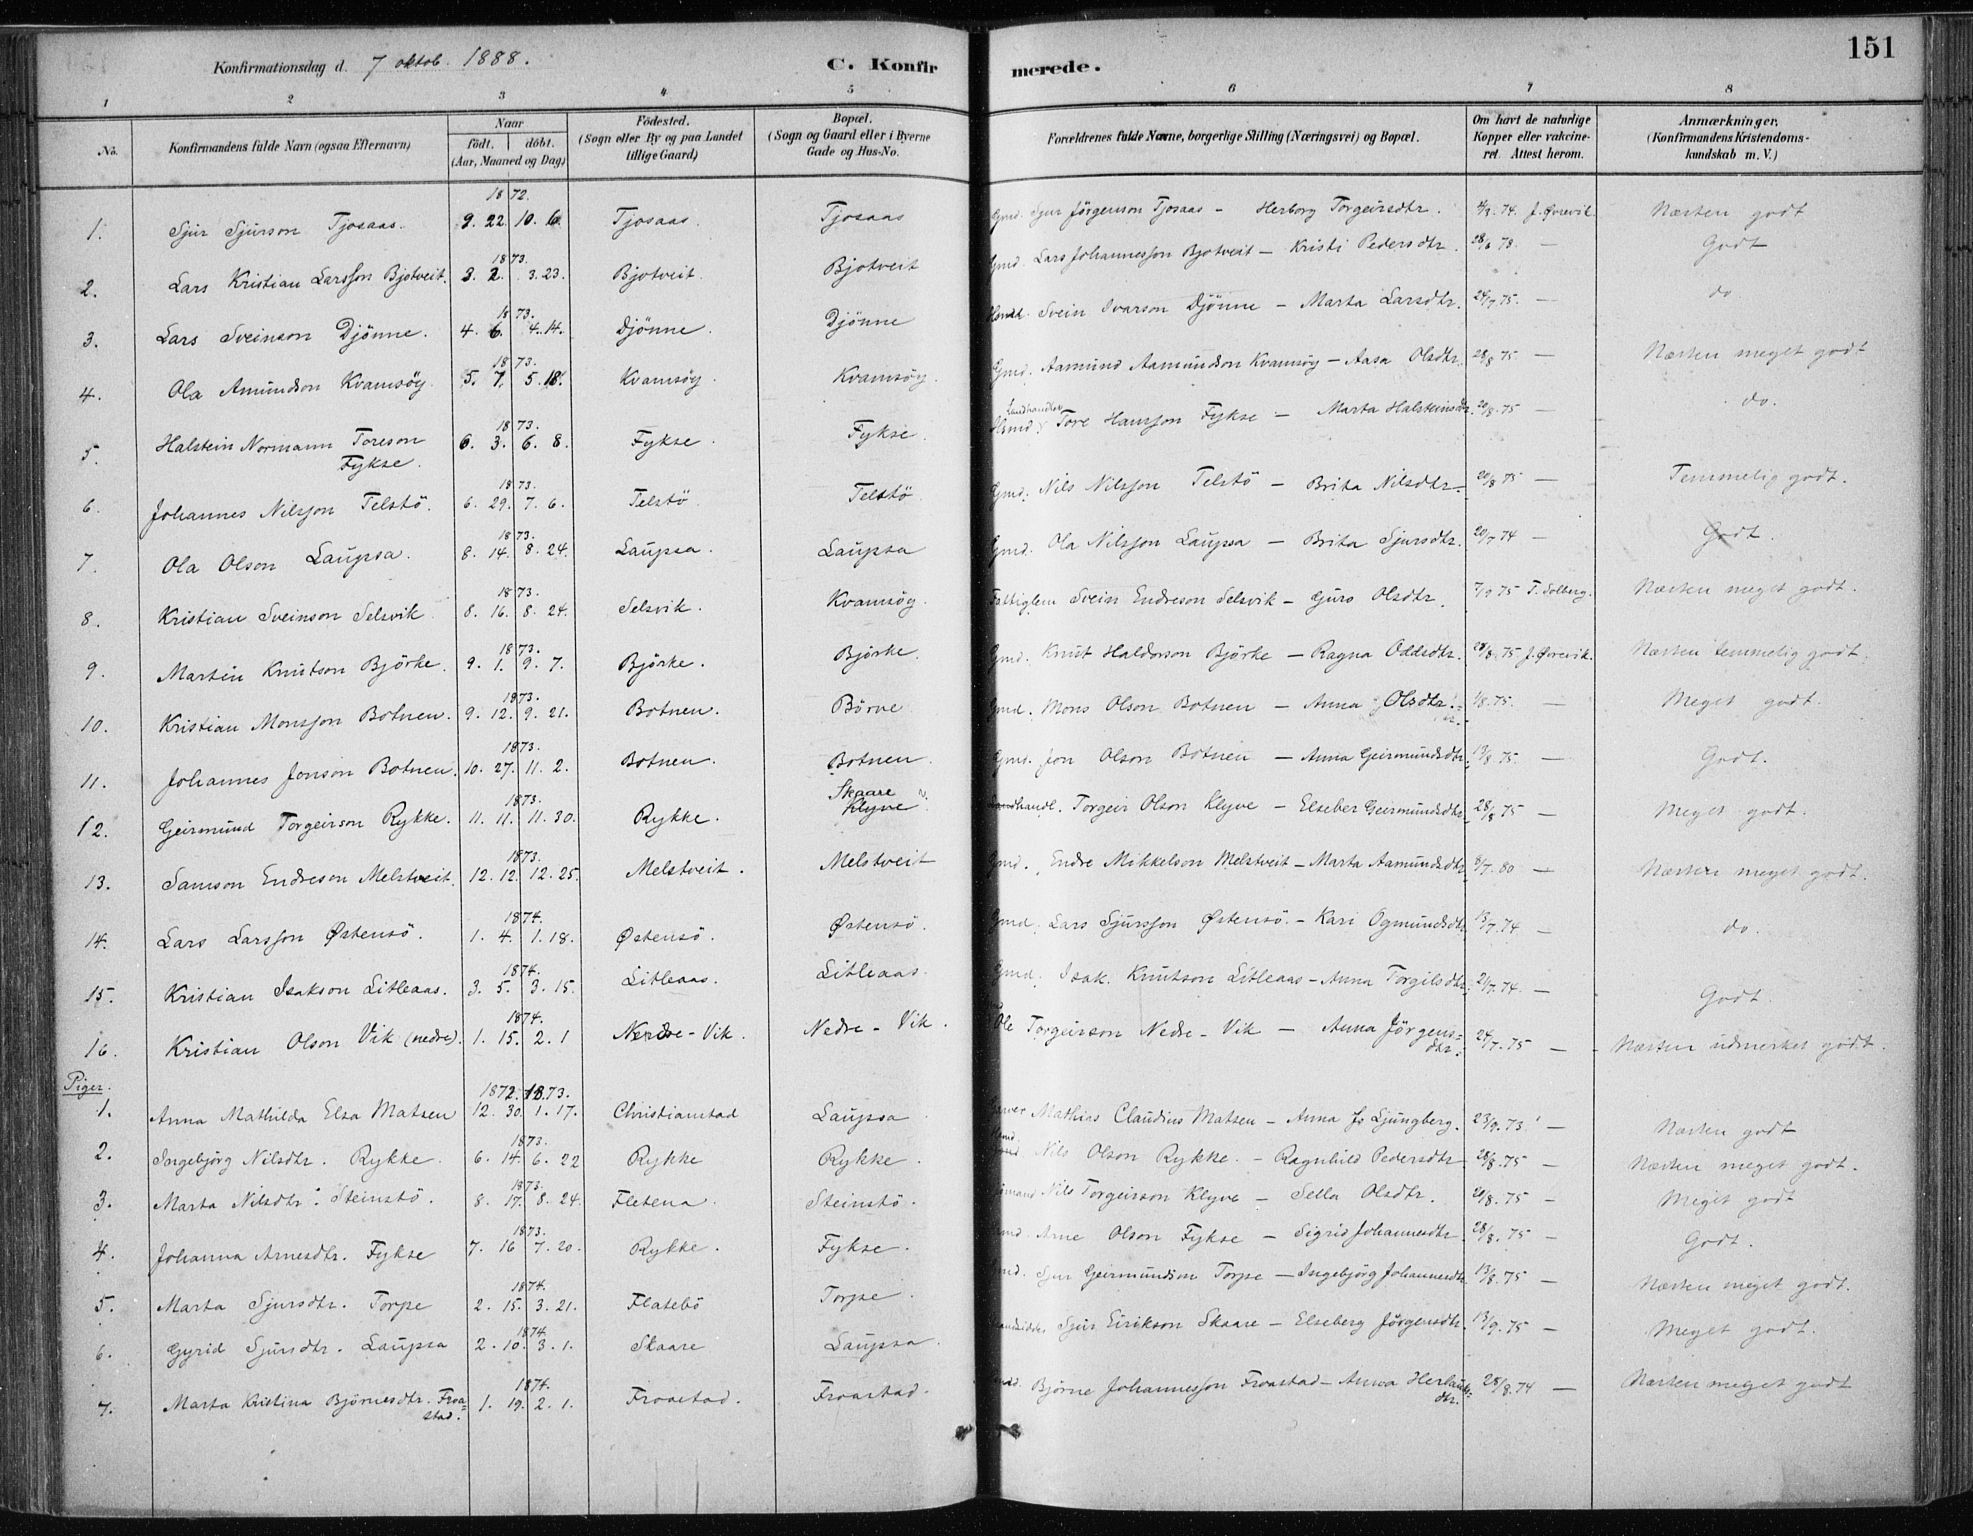 Konfirmationsdag d. 7 oktob. 1888. C. Konfirmerede. 151
1 2 3 4 5 6 7 8
No. Konfirmandens fulde Navn (ogsaa Efternavn) Naar født. døbt. (Aar, Maaned og Dag) Fødested. (Sogn eller By og paa Landet tillige Gaard) Bopæl. (Sogn og Gaard eller i Byerne Gade og Hus-No. Forældrenes fulde Navne, borgerlige Stilling (Næringsvei) og Bopæl. Om havt de naturlige Kopper eller vakcineret. Attest herom. Anmærkninger. (Konfirmandens Kristendomskundskab m. V.)
1872.
1. Sjur Sjurson Tjosaas. 9. 22. 10. 6. Tjosaas. Tjosaas Gmd. Sjur Jørgenson Tjosaas - Herborg Torgeirsdtr. 4/9. 74. J. Øvrevik. Næsten godt
1873.
2. Lars Kristian Larsson Bjotveit. 3. 2. 3. 23. Bjotveit. Bjotveit Gmd. Lars Johannesson Bjotveit - Kristi Pedersdtr. 28/6 78. — Godt
1873.
3. Lars Sveinson Djönne. 4. 6. 4. 14. Djönne. Djönne Svein Ivarson Djönne - Marta Larsdtr. 24/7 75. — do
1873.
4. Ola Amundson Kvamsöy. 5. 7. 5. 18. Kvamsöy. Kvamsöy. Gmd. Aamund Aamundson Kvamsöy - Aasa Olsdtr. 28/8 75 — Næsten meget godt
1873.
5. Halstein Normann Toreson Fykse. 6. 3. 6. 8. Fykse. Fykse. Landhandler Tore Hansson Fykse - Marta Halsteinsdtr. 20/8. 75 — do.
1873.
6. Johannes Nilsson Telstö. 6. 29. 7. 6. Telstö Telstö Gmd. Nils Nilsson Telstö - Brita Nilsdtr. 20/8 75 — Temmelig godt.
1873.
7. Ola Olson Laupsa. 8. 14. 8. 24. Laupsa. Laupsa Gmd. Ola Nilsson Laupsa - Brita Sjursdtr. 20/7 74 — Godt.
1873.
8. Kristian Sveinson Selsvik. 8. 16. 8. 24. Selsvik. Kvamsöy. Fattiglem Svein Endreson Selsvik - Guro Olsdtr. 7/9 75 T. Solberg. Næsten meget godt.
1873.
9. Martin Knutson Björke. 9. 1. 9. 7. Björke. Björke. Gmd. Knut Haldorson Björke - Ragna Oddsdtr. 28/8. 75 J. Øvrevik. Næsten temmelig godt
1873.
10. Kristian Monsson Botnen. 9. 12. 9. 21. Botnen. Börve Gmd. Mons Olson Botnen - Anna Olsdtr. 1/8. 75. — Meget godt.
1873.
11. Johannes Jonson Botnen. 10. 27. 11. 2. Botnen. Botnen. Gmd. Jon Olson Botnen - Anna Geirmundsdtr. 13/8 75. — Godt.
1873.
12. Geirmund Torgeirson Rykke. 11. 11. 11. 30. Rykke. Skaare Klyve Landhandl. Torgeir Olson Klyve - Elseber Geirmundsdtr. 28/8 75 — Meget godt.
1873.
13. Samson Endreson Melstveit. 12. 12. 12. 25. Melstveit. Melstveit Gmd. Endre Mikkelson Melstveit - Marta Aamundsdtr. 8/7. 80 — Næsten meget godt.
1874.
14. Lars Larsson Östensö. 1. 4. 1. 18. Östensö. Östensö. Gmd. Lars Sjursson Östensö. - Kari Ogmundsdtr. 13/7. 74 — do.
1874.
15. Kristian Isakson Litleaas. 3. 5. 3. 15. Litleaas. Litleaas. Gmd. Isak Knutson Litleaas - Anna Torgilsdtr. 21/7. 74. — Godt
1874.
16. Kristian Olson Vik (nedre). 1. 15. 2. 1 Nedre-Vik. Nedre-Vik. Ole Torgeirson Nedre-Vik - Anna Jörgensdtr. 24/7. 75 — Næsten udmerket godt.
Piger.
1872. 1873.
1. Anna Mathilda Elsa Matsen 12. 30. 1. 17. Christianstad Laupsa Mathias Claudius Matsen - Anna Ljungberg. 23/9. 73. — Næsten godt
1873.
2. Ingebjörg Nilsdtr. Rykke. 6. 14. 6. 22 Rykke Rykke. Nils Olson Rykke. - Ragnhild Pedersdtr 28/8. 75 — Næsten meget godt.
1873.
3. Marta Nilsdtr. Steinstö. 8. 17. 8. 24. Fletena. Steinstö. Nils Torgeirson Klyve - Sella Olsdtr. 20/8. 75 — Meget godt
1873.
4. Johanna Arnesdtr. Fykse 7. 16 7. 20. Rykke. Fykse. Arne Olson Fykse - Sigrid Johannesdtr. 28/8. 75 — Godt.
1874.
5. Marta Sjursdtr. Torpe 2. 15. 3. 21. Flatebö Torpe. Gmd. Sjur Geirmundson Torpe - Ingebjörg Johannesdtr. 13/8. 75 — Næsten meget godt.
1874.
6. Gyrid Sjursdtr. Laupsa 2. 10. 3. 1. Skaare Laupsa. Sjur Eirikson Skaare - Elseberg Jörgensdtr. 13/9. 75 — Meget godt.
1874.
7. Marta Kristina Björnesdtr. Froastad. 1. 19. 2. 1. Froastad. Froastad. Björne Johannesson Froastad - Anna Herlaugsdtr. 28/8. 74 — Næsten meget godt